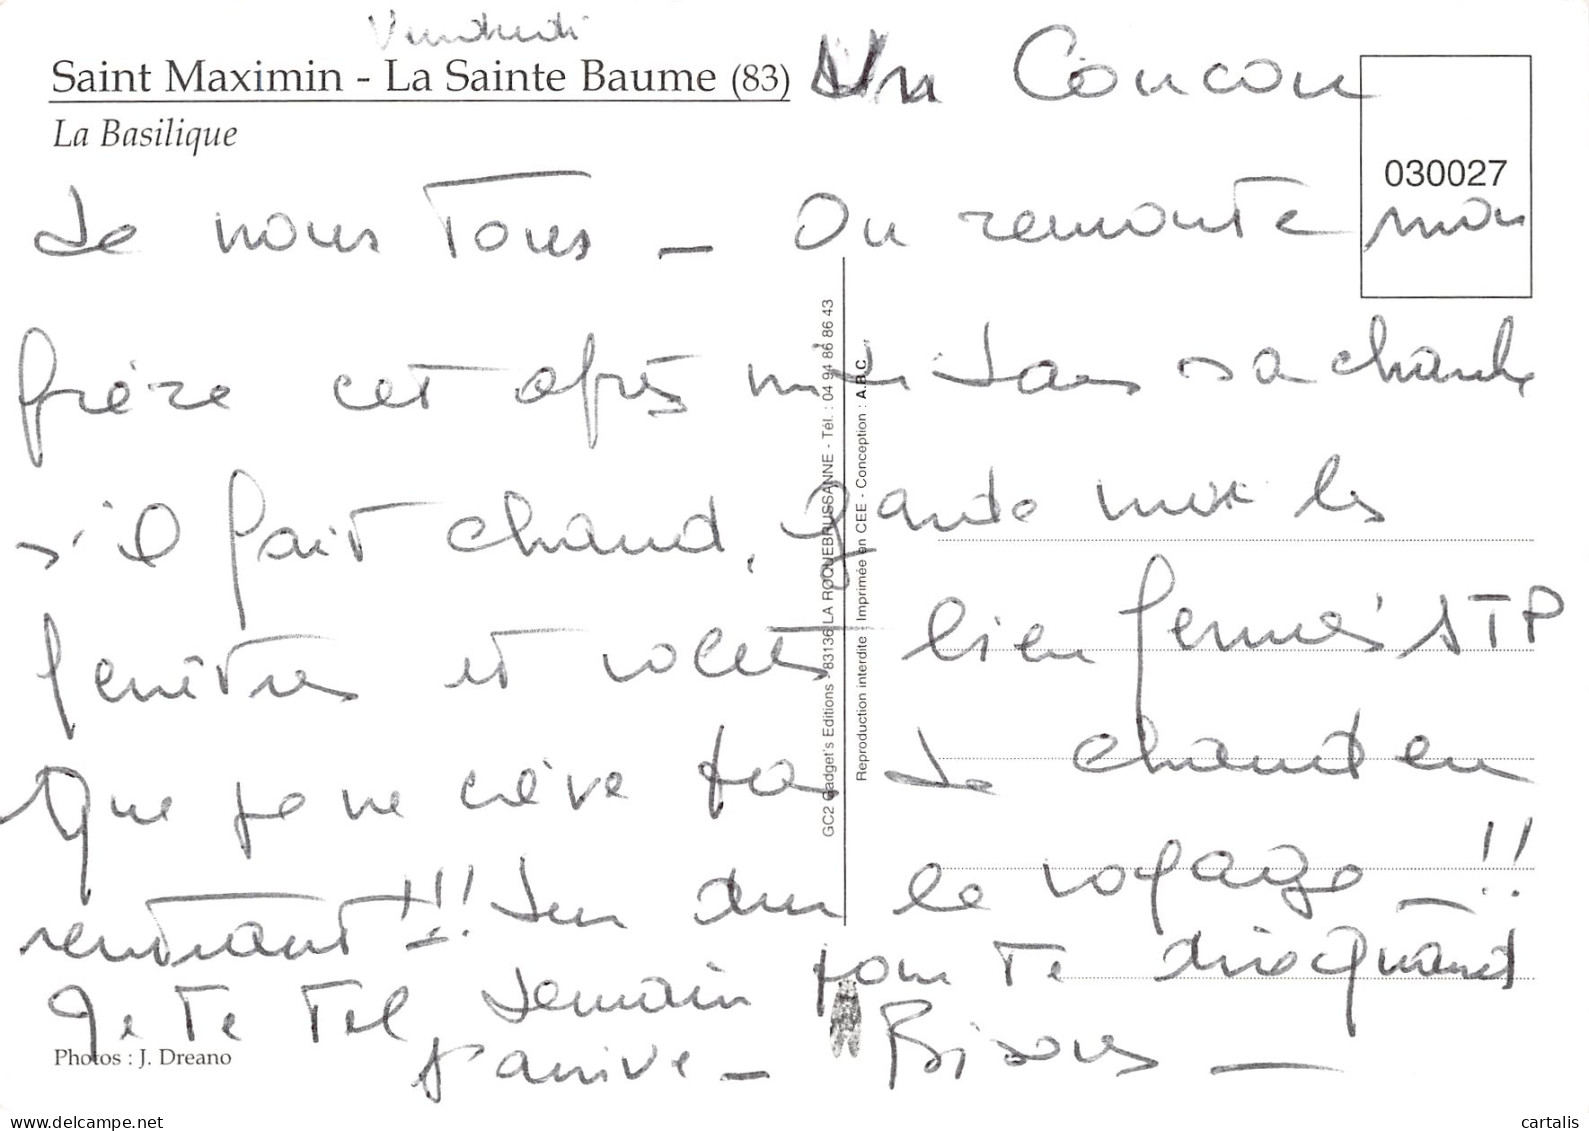 Vendredi
Saint Maximin - La Sainte Baume (83) Un Coucou
La Basilique
030027
de nous Tous — On remonte mon
frère cet après midi dans sa chambre
s'il fait chaud, garde moi les
fenêtres et volets bien fermés STP
Que je ne crève pas de chaud en
rentrant!!! dur dur le voyage —!!
Je te tel demain pour te dire quand
j'arrive — Bisous —
GC2 Gadget's Editions - 83136 LA ROQUEBRUSSANNE - Tél. : 04 94 86 86 43
Reproduction interdite - Imprimée en CEE - Conception : A.B.C.
Photos : J. Dreano
www.delcampe.net
cartalis